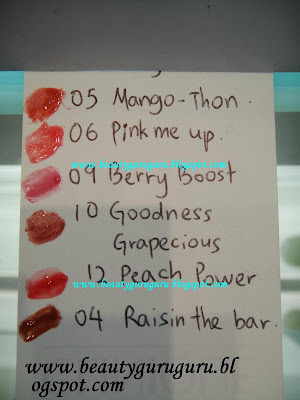 05 Mango-Thon.
06 Pink me up.
www.beautyguruguru.blogspot.com
09 Berry Boost
10 Goodness
Grapecious
12 Peach Power
www.beautyguruguru.blogspot.com
04 Raisin the bar.
www.beautyguruguru.bl
ogspot.com